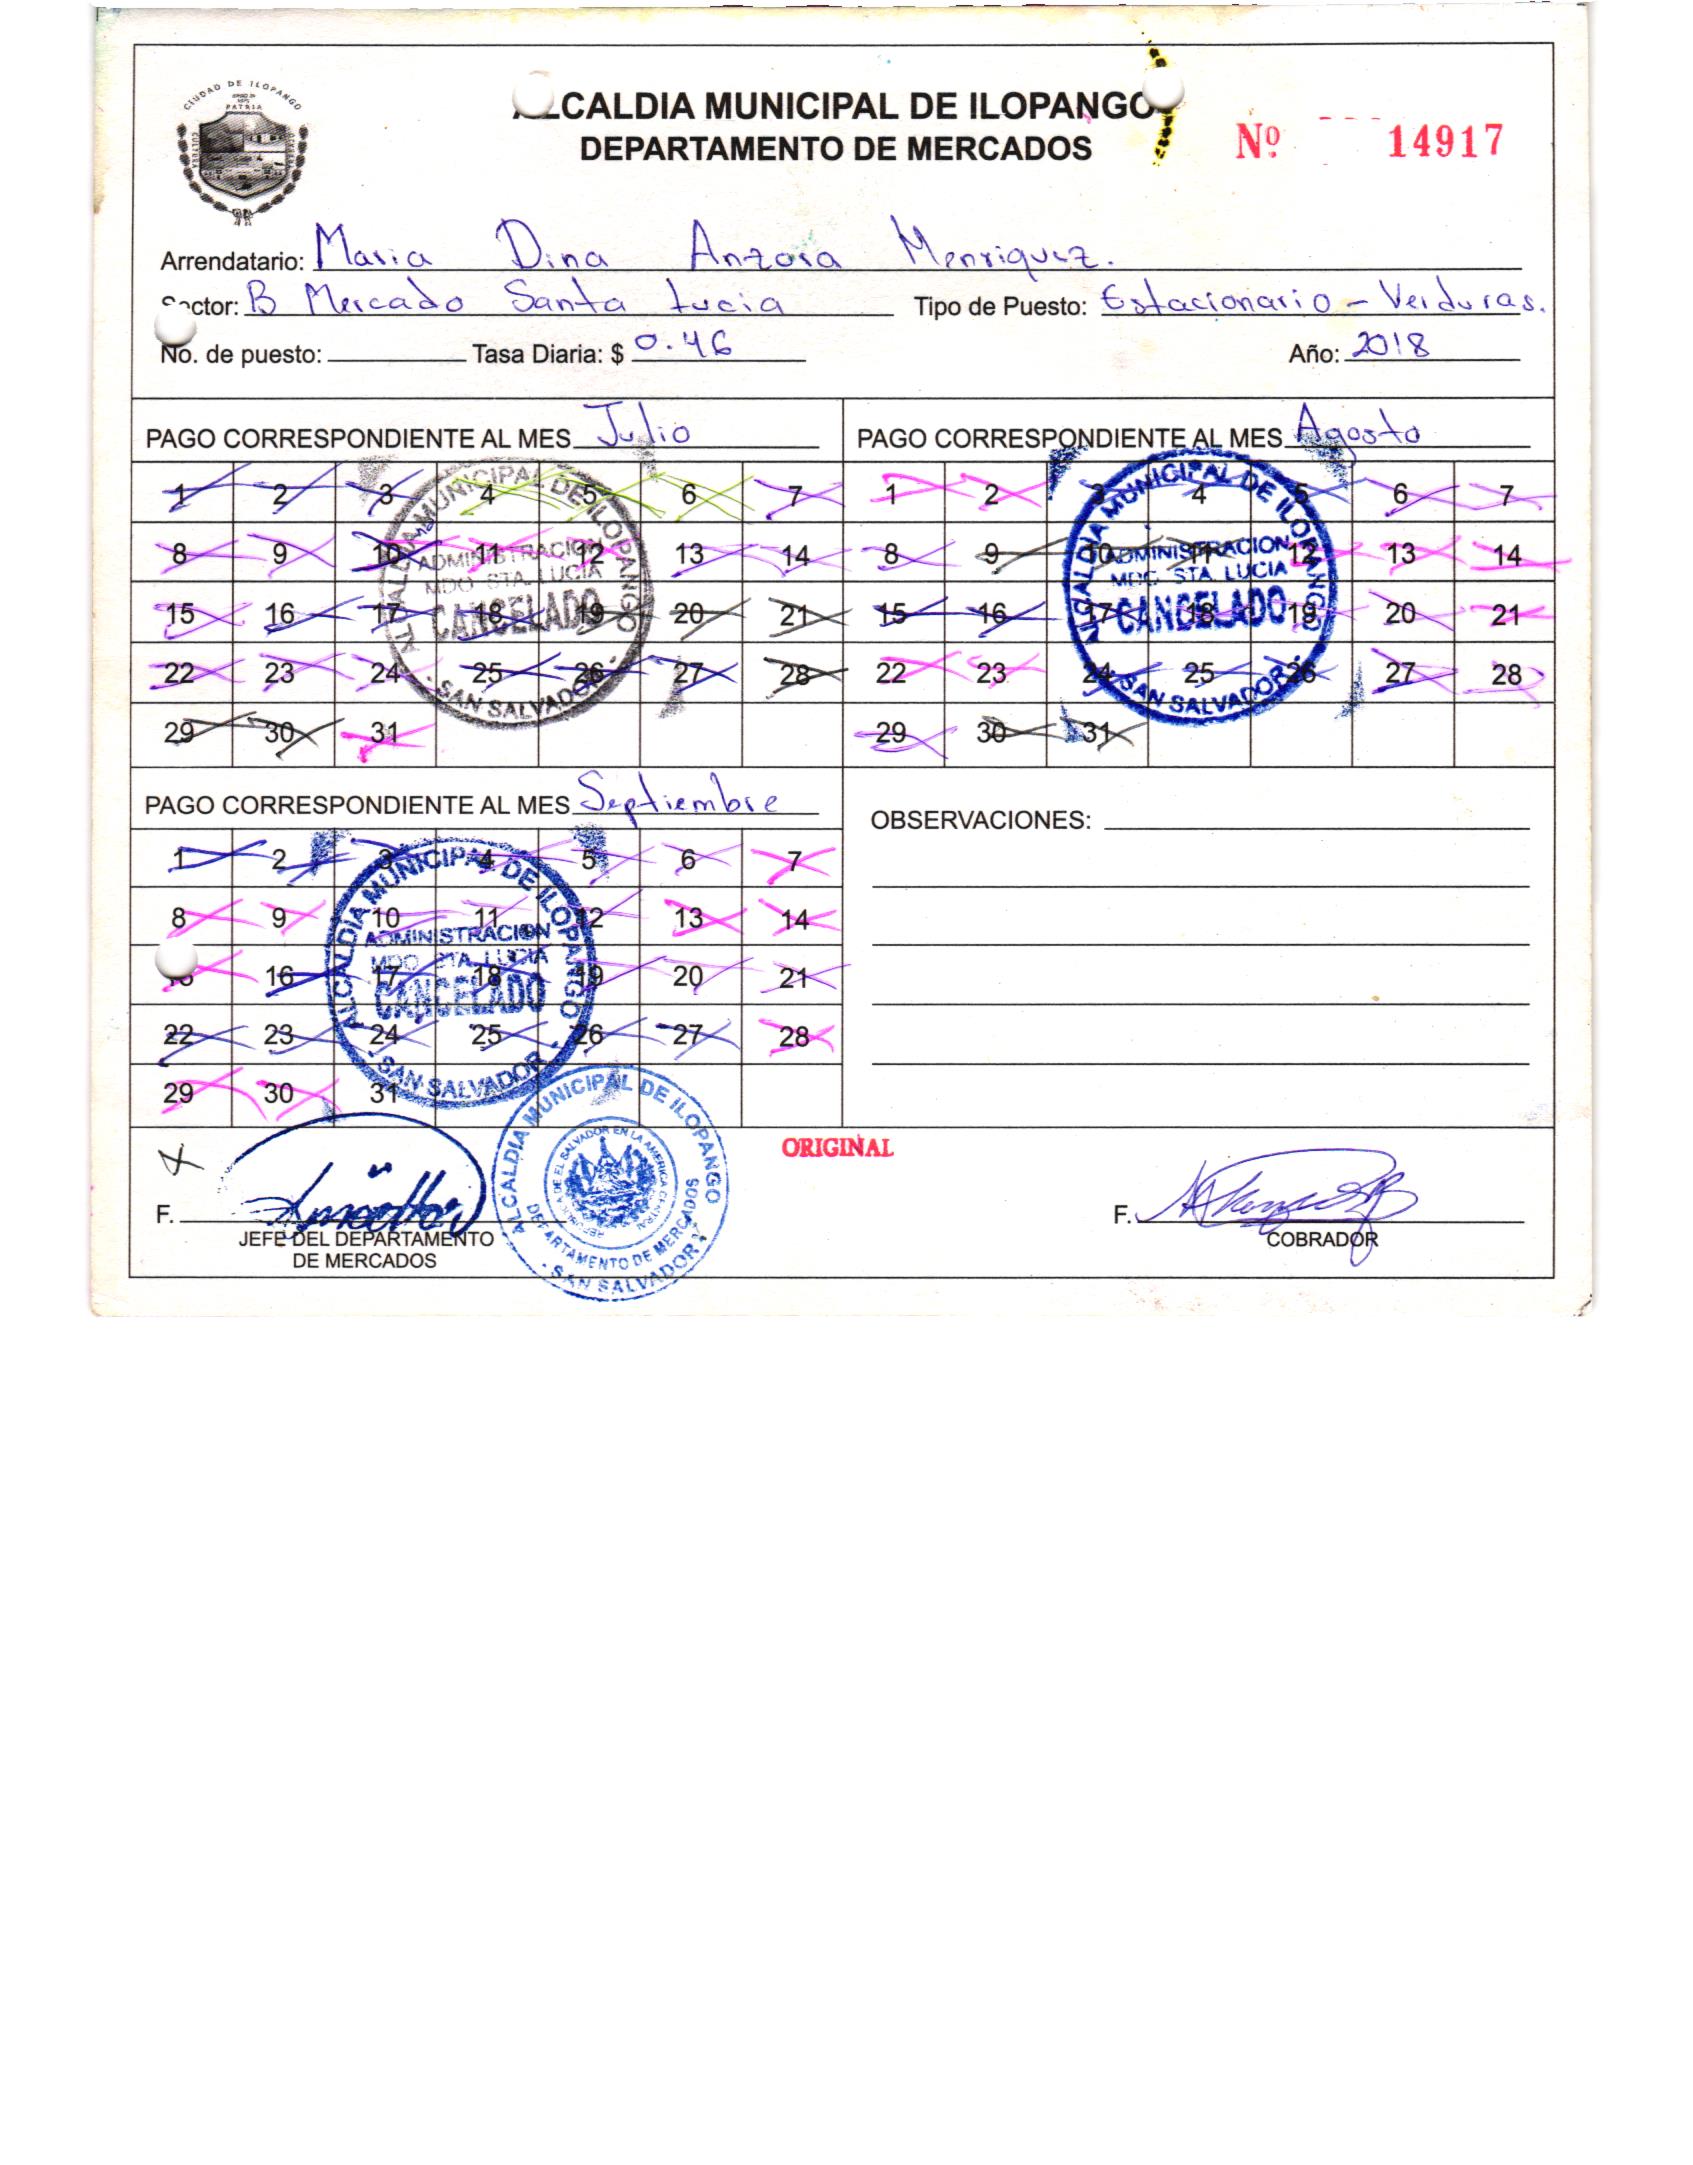 CIUDAD DE ILOPANGO
PATRIA
CULTURA
ALCALDIA MUNICIPAL DE ILOPANGO
DEPARTAMENTO DE MERCADOS
Nº 14917
Arrendatario: Maria Dina Anzora Menriquez.
Sector: B Mercado Santa Lucia Tipo de Puesto: Estacionario - Verduras.
No. de puesto: Tasa Diaria: $ 0.46 Año: 2018
PAGO CORRESPONDIENTE AL MES Julio
1 2 3 4 5 6 7
8 9 10 11 12 13 14
15 16 17 18 19 20 21
22 23 24 25 26 27 28
29 30 31
ALCALDIA MUNICIPAL DE ILOPANGO
ADMINISTRACION
MDO. STA. LUCIA
CANCELADO
- SAN SALVADOR -
PAGO CORRESPONDIENTE AL MES Agosto
1 2 3 4 5 6 7
8 9 10 11 12 13 14
15 16 17 18 19 20 21
22 23 24 25 26 27 28
29 30 31
ALCALDIA MUNICIPAL DE ILOPANGO
ADMINISTRACION
MDO. STA. LUCIA
CANCELADO
- SAN SALVADOR -
PAGO CORRESPONDIENTE AL MES Septiembre
1 2 3 4 5 6 7
8 9 10 11 12 13 14
15 16 17 18 19 20 21
22 23 24 25 26 27 28
29 30 31
ALCALDIA MUNICIPAL DE ILOPANGO
ADMINISTRACION
MDO. STA. LUCIA
CANCELADO
- SAN SALVADOR -
OBSERVACIONES:
ORIGINAL
F.
JEFE DEL DEPARTAMENTO
DE MERCADOS
ALCALDIA MUNICIPAL DE ILOPANGO
REPUBLICA DE EL SALVADOR EN LA AMERICA CENTRAL
DEPARTAMENTO DE MERCADOS
- SAN SALVADOR -
F.
COBRADOR